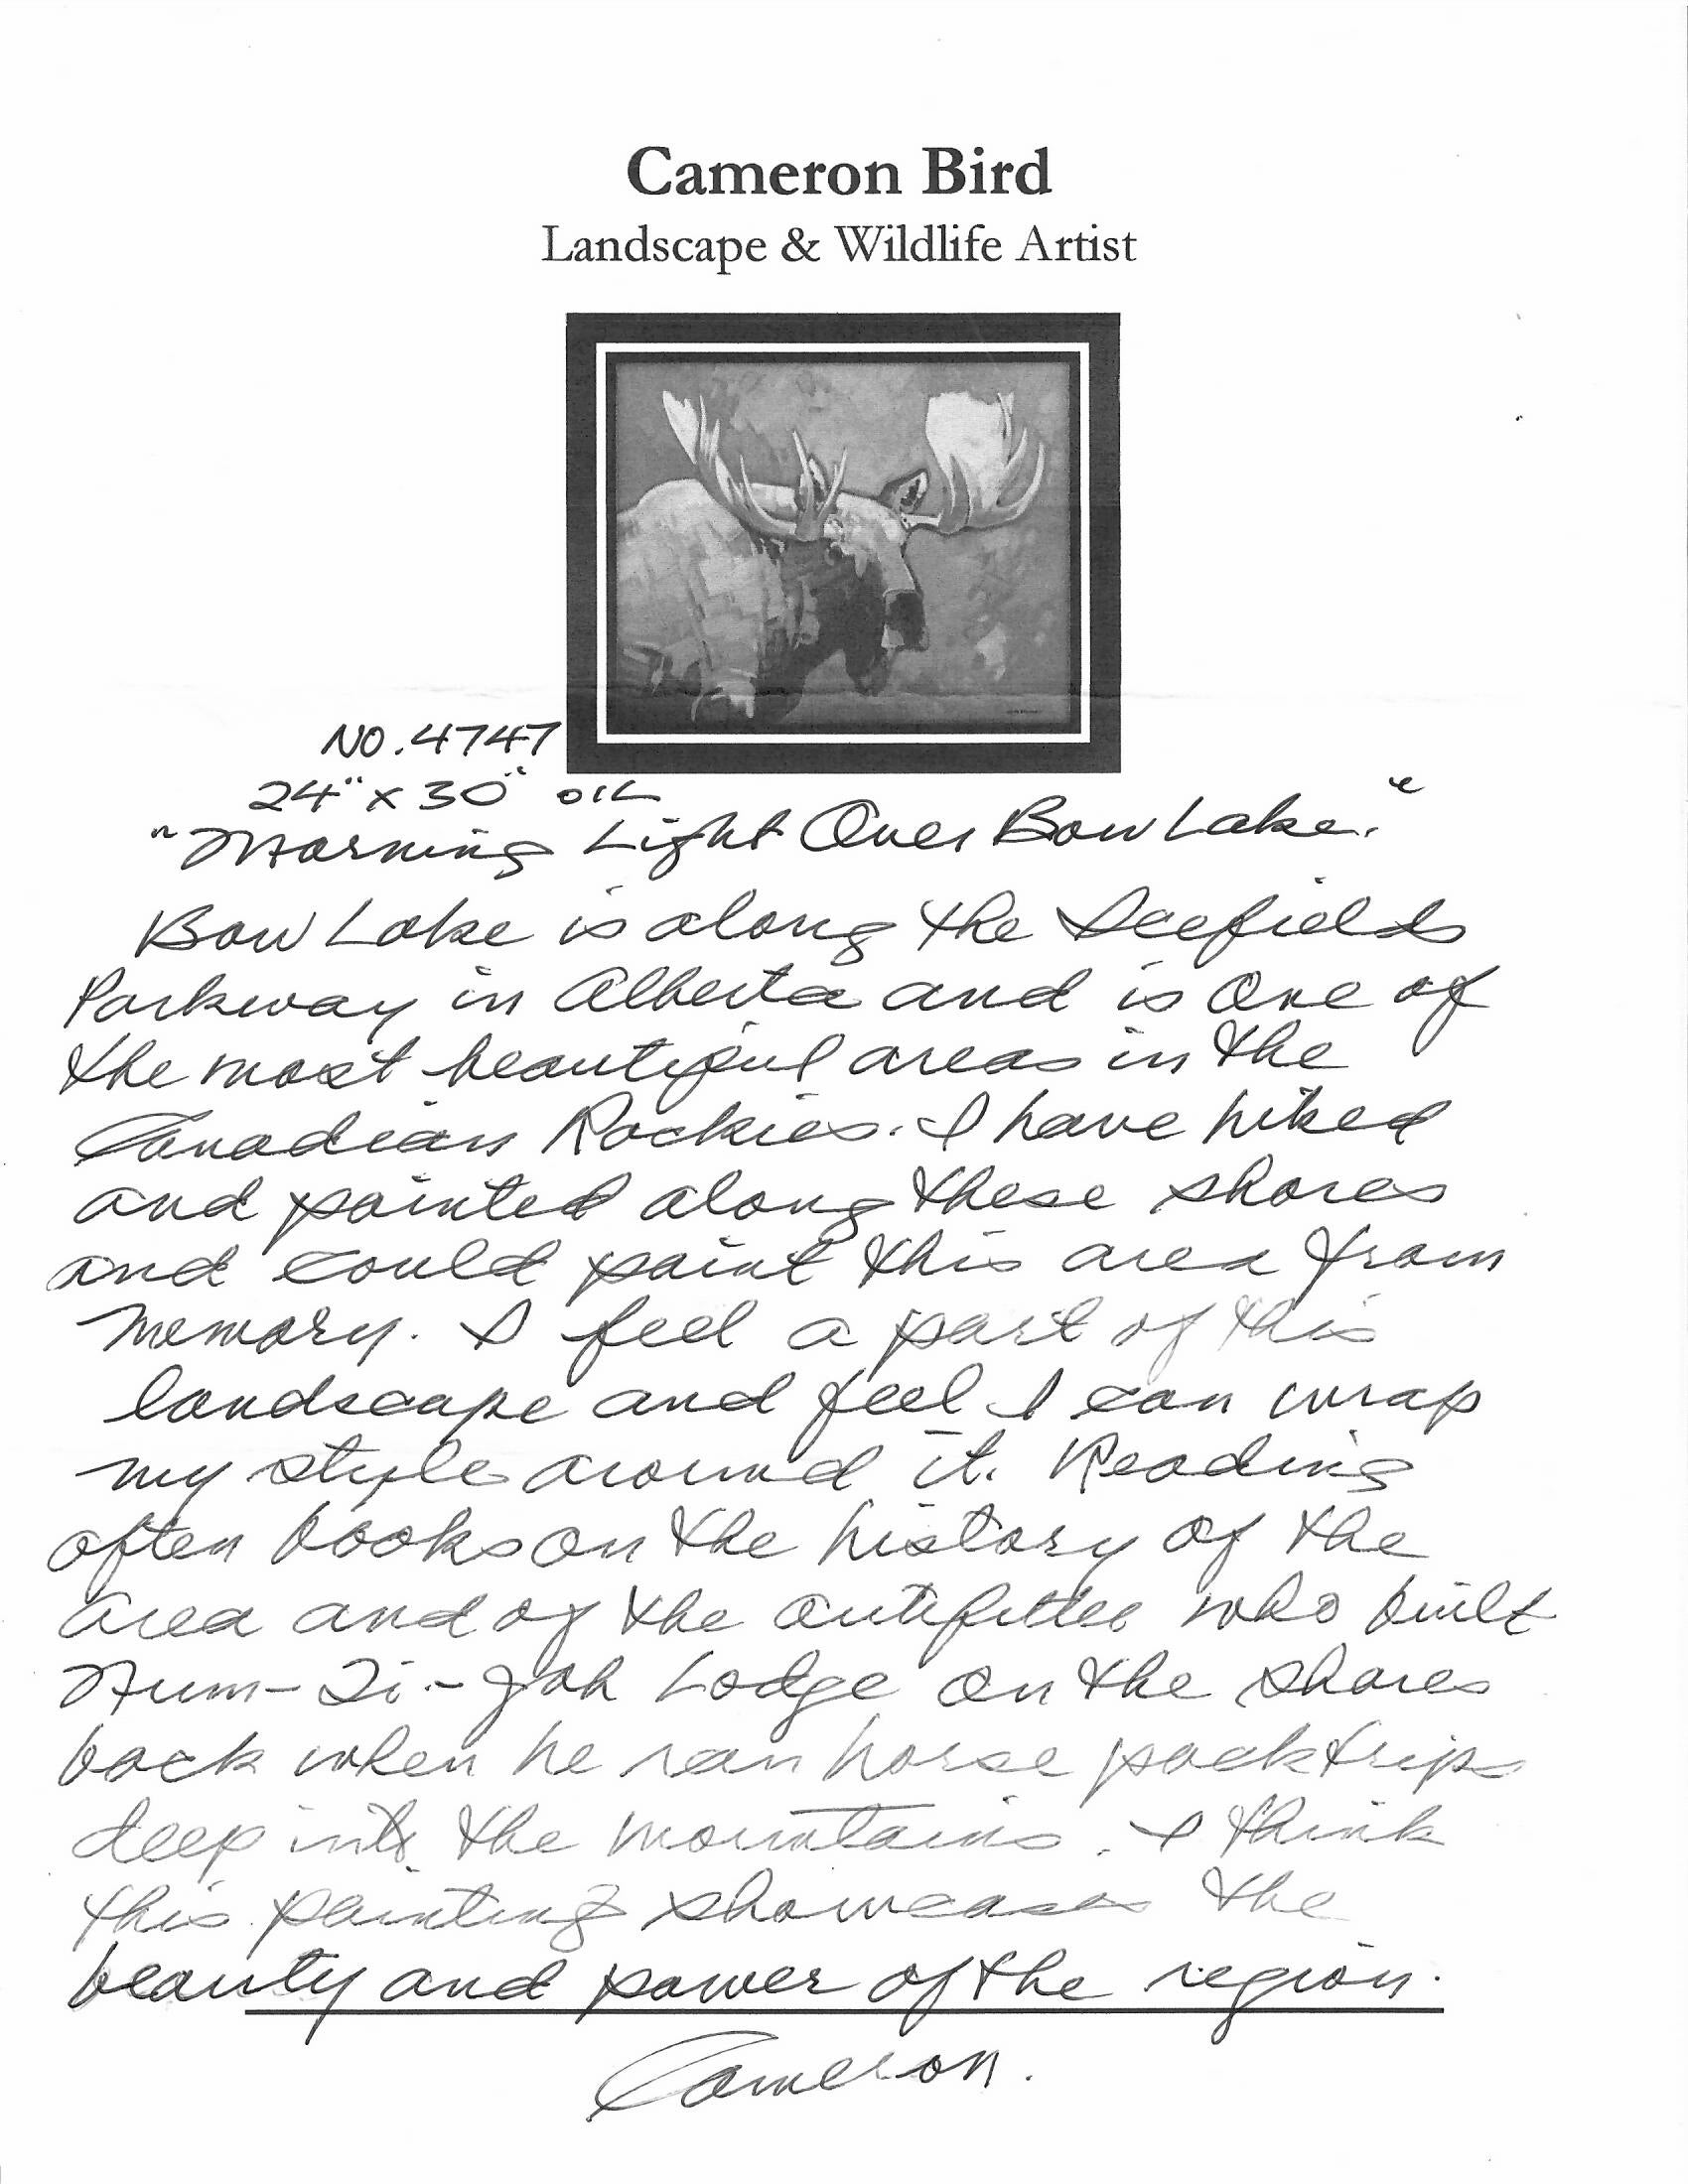 Cameron Bird
Landscape & Wildlife Artist
NO. 4747
24" x 30" OIL
"Morning Light Over Bow Lake."
Bow Lake is along the Icefields
Parkway in Alberta and is one of
the most beautiful areas in the
Canadian Rockies. I have hiked
and painted along these shores
and could paint this area from
memory. I feel a part of this
landscape and feel I can wrap
my style around it. Reading
often books on the history of the
area and of the outfitter who built
Num-Ti-Jah Lodge on the shores
back when he ran horse pack trips
deep into the mountains. I think
this painting showcases the
beauty and power of the region.
Cameron.